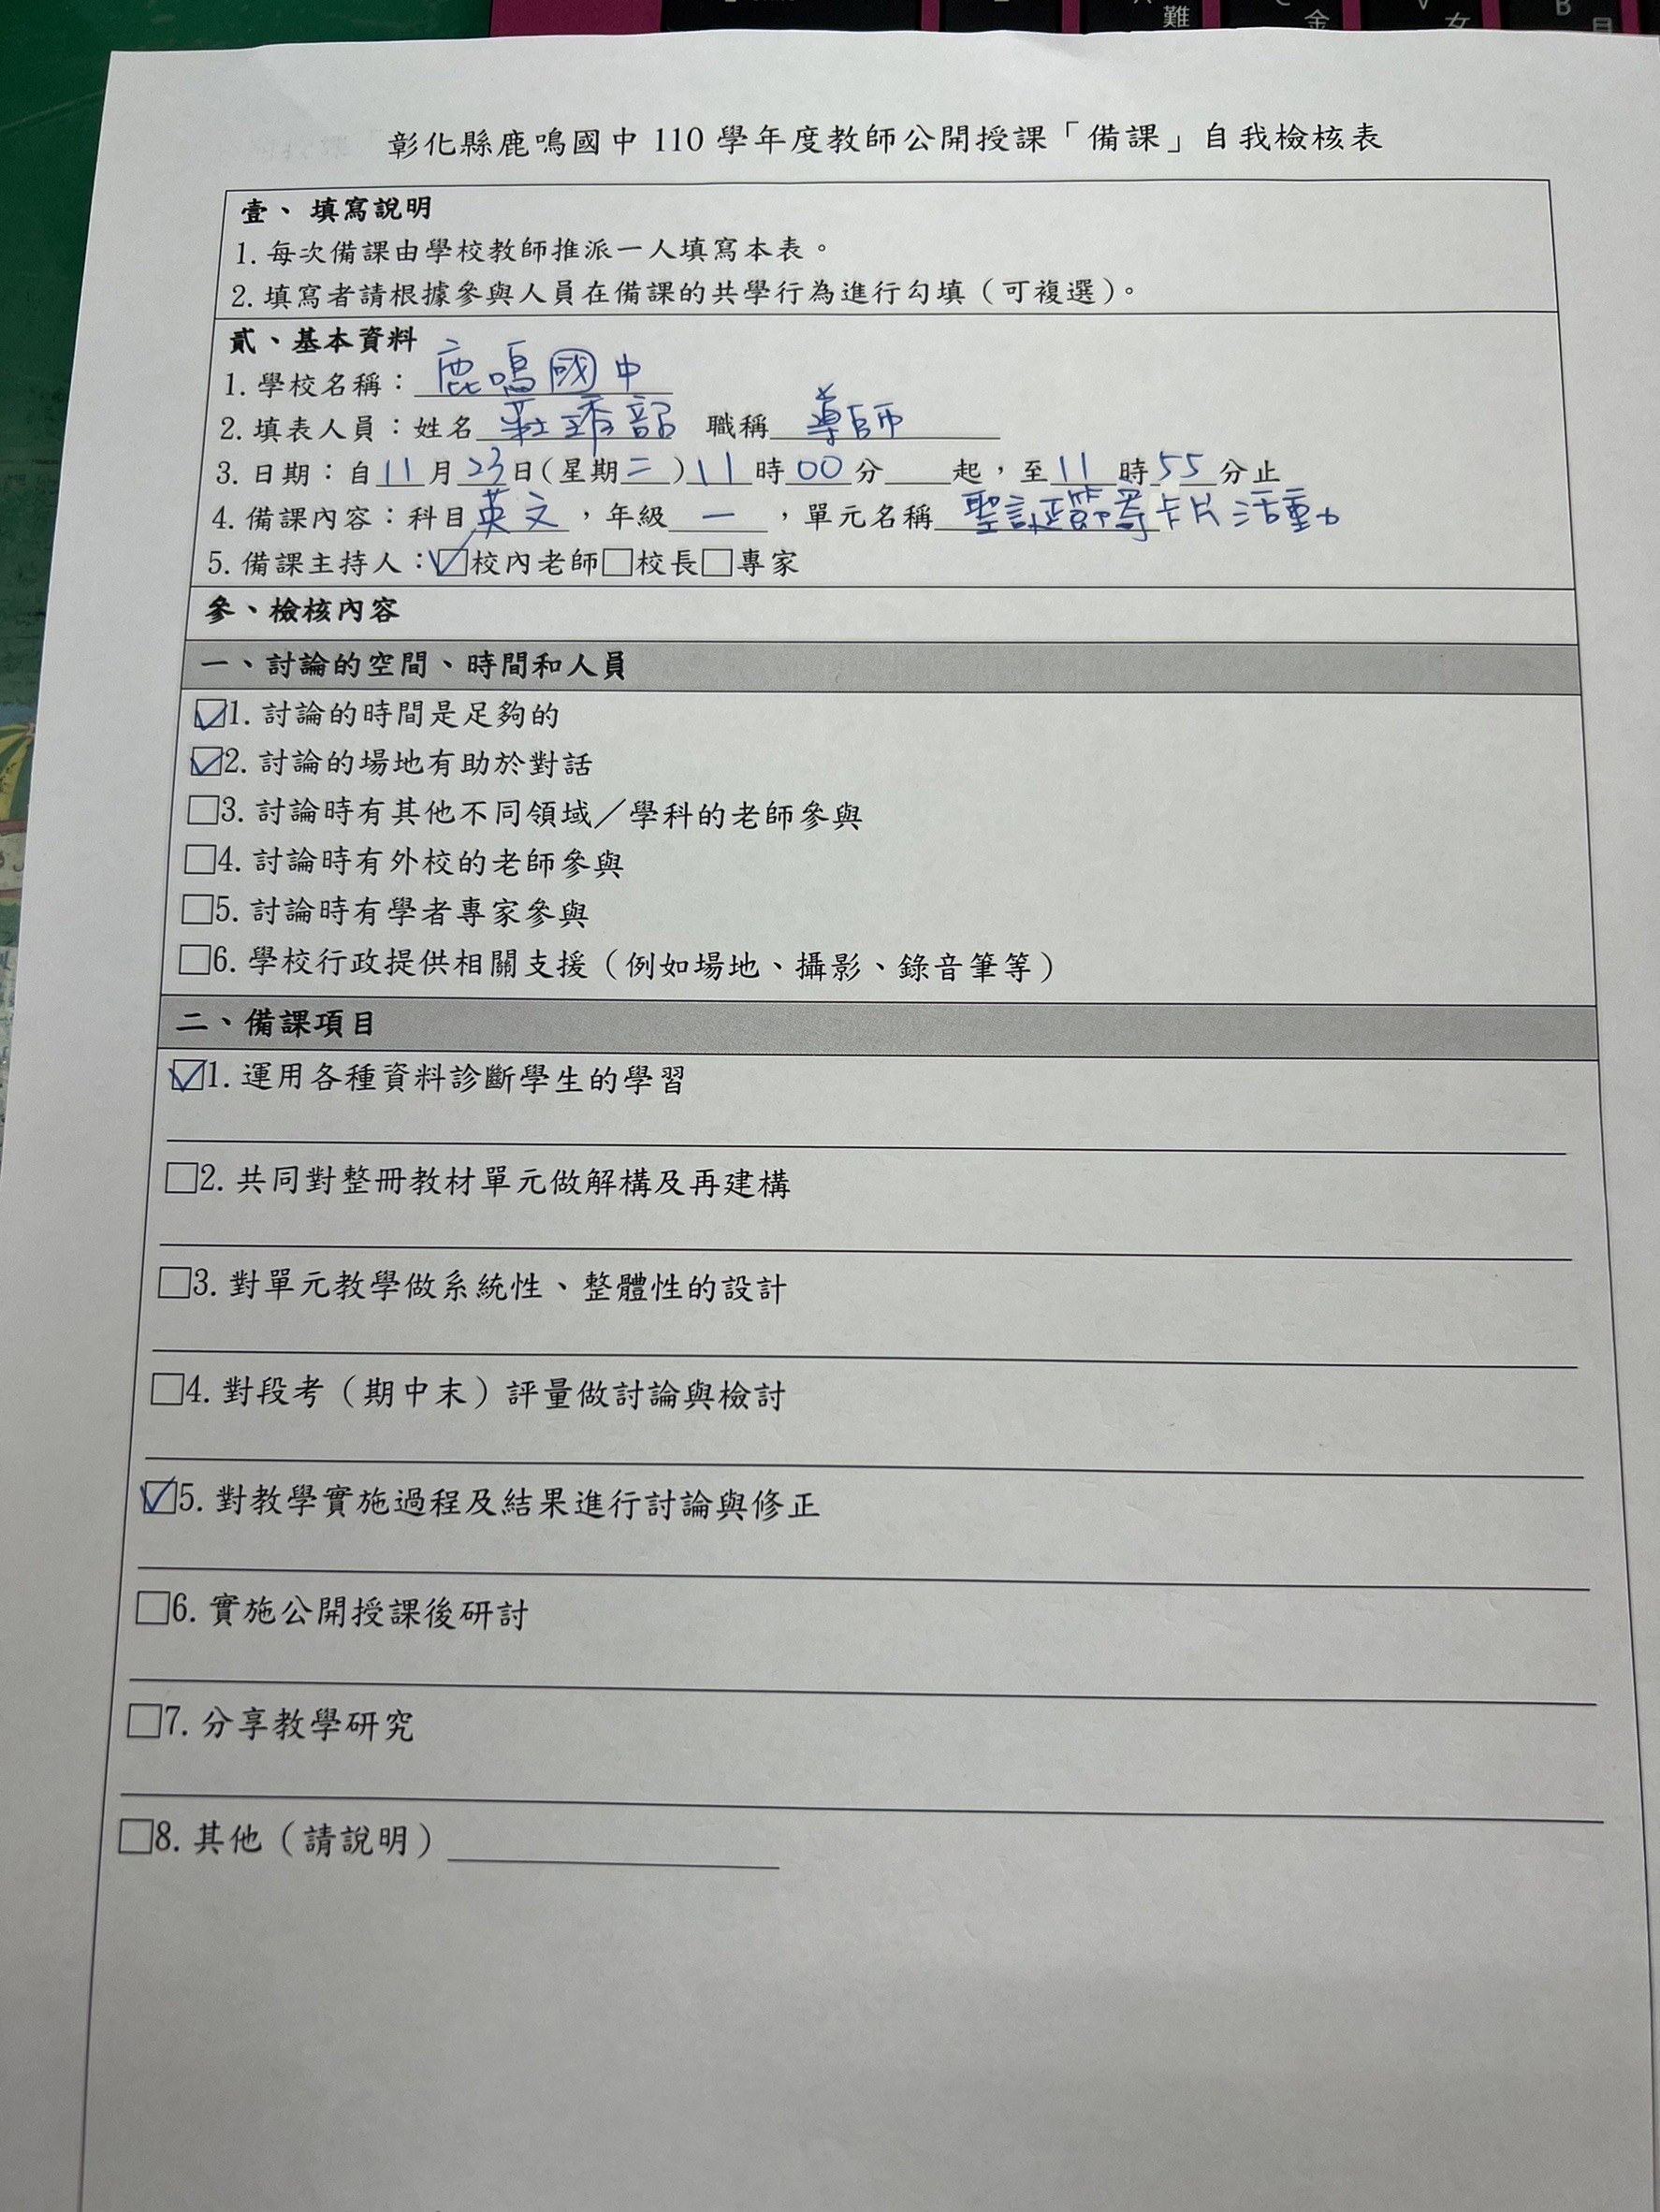 難 金 女 B 月
彰化縣鹿鳴國中 110 學年度教師公開授課「備課」自我檢核表
壹、 填寫說明
1. 每次備課由學校教師推派一人填寫本表。
2. 填寫者請根據參與人員在備課的共學行為進行勾填（可複選）。
貳、基本資料
1. 學校名稱：鹿鳴國中
2. 填表人員：姓名 職稱 導師
3. 日期：自11月23日(星期二)11時00分 起，至11時55分止
4. 備課內容：科目英文，年級一，單元名稱 聖誕節寄卡片活動
5. 備課主持人：☑校內老師□校長□專家
參、檢核內容
一、討論的空間、時間和人員
☑1. 討論的時間是足夠的
☑2. 討論的場地有助於對話
□3. 討論時有其他不同領域／學科的老師參與
□4. 討論時有外校的老師參與
□5. 討論時有學者專家參與
□6. 學校行政提供相關支援（例如場地、攝影、錄音筆等）
二、備課項目
☑1. 運用各種資料診斷學生的學習
□2. 共同對整冊教材單元做解構及再建構
□3. 對單元教學做系統性、整體性的設計
□4. 對段考（期中末）評量做討論與檢討
☑5. 對教學實施過程及結果進行討論與修正
□6. 實施公開授課後研討
□7. 分享教學研究
□8. 其他（請說明）